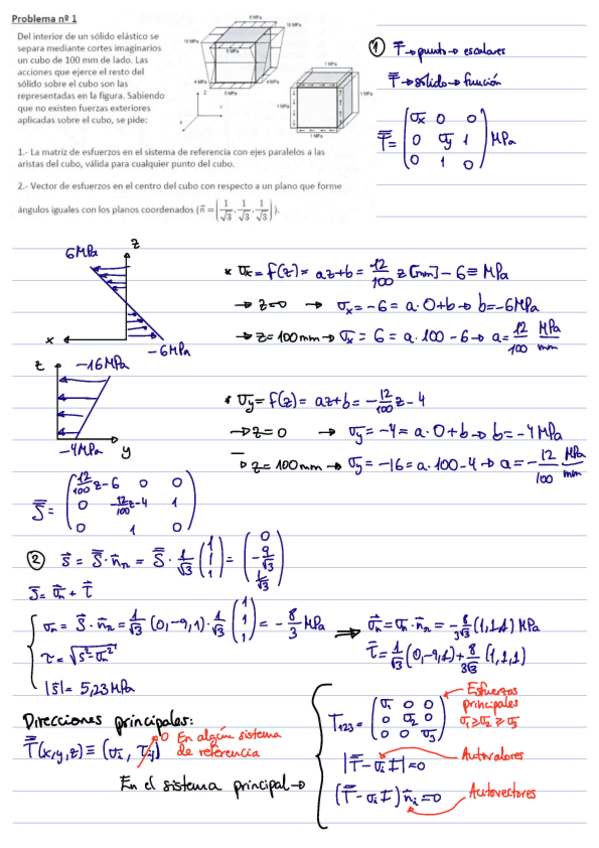 Problema nº 1
Del interior de un sólido elástico se
separa mediante cortes imaginarios
un cubo de 100 mm de lado. Las
acciones que ejerce el resto del
sólido sobre el cubo son las
representadas en la figura. Sabiendo
que no existen fuerzas exteriores
aplicadas sobre el cubo, se pide:
1.- La matriz de esfuerzos en el sistema de referencia con ejes paralelos a las
aristas del cubo, válida para cualquier punto del cubo.
2.- Vector de esfuerzos en el centro del cubo con respecto a un plano que forme
ángulos iguales con los planos coordenados (n̄ = (1/√3, 1/√3, 1/√3)).
① T̄ → punto → escalares
T̄ → sólido → función
T̿ = (σx 0 0
0 σy 1
0 1 0) MPa
6 MPa
z
x
-6MPa
* σx = f(z) = az+b = 12/100 z [mm] - 6 ≡ MPa
→ z=0 → σx = -6 = a·0+b → b=-6MPa
→ z=100mm → σx = 6 = a·100-6 → a = 12/100 MPa/mm
z
-16MPa
-4MPa
y
* σy = f(z) = az+b = -12/100 z-4
→ z=0 → σy = -4 = a·0+b → b=-4MPa
→ z=100mm → σy = -16 = a·100-4 → a = -12/100 MPa/mm
S̿ = (12/100 z-6 0 0
0 -12/100 z-4 1
0 1 0)
② s⃗ = S̿·n⃗n = S̿·1/√3 (1 1 1) = (0 -9/√3 1/√3)
s̄ = σ⃗n + τ⃗
σn = s⃗·n⃗n = 1/√3 (0,-9,1)·1/√3 (1 1 1) = -8/3 MPa ⟹ σ⃗n = σn·n⃗n = -8/3√3 (1,1,1) MPa
τ = √s²-σn²
τ⃗ = 1/√3 (0,-9,1)+8/3√3 (1,1,1)
|s̄| = 5,23 MPa
Direcciones principales:
T̿(x,y,z) ≡ (σi, τij) 0 En algún sistema
de referencia
En el sistema principal →
T123 = (σ1 0 0
0 σ2 0
0 0 σ3)
Esfuerzos
principales
σ1≥σ2≥σ3
|T̿-σiI|=0
Autovalores
(T̿-σiI)n̄i=0
Autovectores